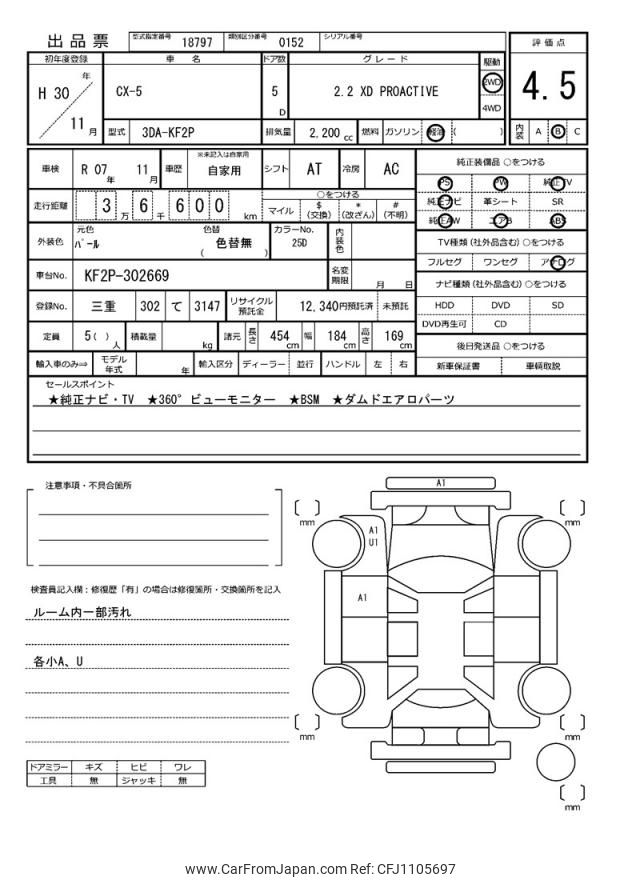 出品票 型式指定番号 18797 類別区分番号 0152 シリアル番号
初年度登録 車名 ドア数 グレード 駆動 評価点
H 30 年 11 月 CX-5 5 D 2.2 XD PROACTIVE 2WD 4WD 4.5
型式 3DA-KF2P 排気量 2,200 cc 燃料 ガソリン 軽油 ( ) 内装 A B C
車検 R 07 年 11 月 車歴 ※未記入は自家用 自家用 シフト AT 冷房 AC 純正装備品 ○をつける
PS PW 純正TV
走行距離 3 万 6 千 6 0 0 km ○をつける 純正ナビ 革シート SR
マイル $ (交換) * (改ざん) # (不明) 純正AW エアB ABS
外装色 元色 パール 色替 ( 色替無 ) カラーNo. 25D 内装色 TV種類 (社外品含む) ○をつける
フルセグ ワンセグ アナログ
車台No. KF2P-302669 名変期限 月 日 ナビ種類 (社外品含む) ○をつける
登録No. 三重 302 て 3147 リサイクル預託金 12,340円預託済 未預託 HDD DVD SD
DVD再生可 CD
定員 5( ) 人 積載量 kg 諸元 長さ 454 cm 幅 184 cm 高さ 169 cm 後日発送品 ○をつける
輸入車のみ⇒ モデル年式 年 輸入区分 ディーラー 並行 ハンドル 左 右 新車保証書 車輌取説
セールスポイント
★純正ナビ・TV ★360°ビューモニター ★BSM ★ダムドエアロパーツ
注意事項・不具合箇所
A1
mm mm
A1
U1
検査員記入欄：修復歴「有」の場合は修復箇所・交換箇所を記入
A1
ルーム内一部汚れ
各小A、U
mm mm
ドアミラー キズ ヒビ ワレ
工具 無 ジャッキ 無
mm
www.CarFromJapan.com Ref: CFJ1105697